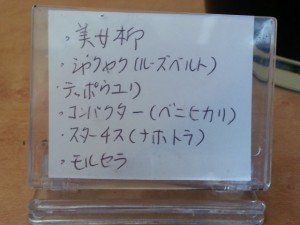 ・美女柳
・シャクヤク(ルーズベルト)
・テッポウユリ
・コンパクター(ベニヒカリ)
・スターチス(ナホトラ)
・モルセラ